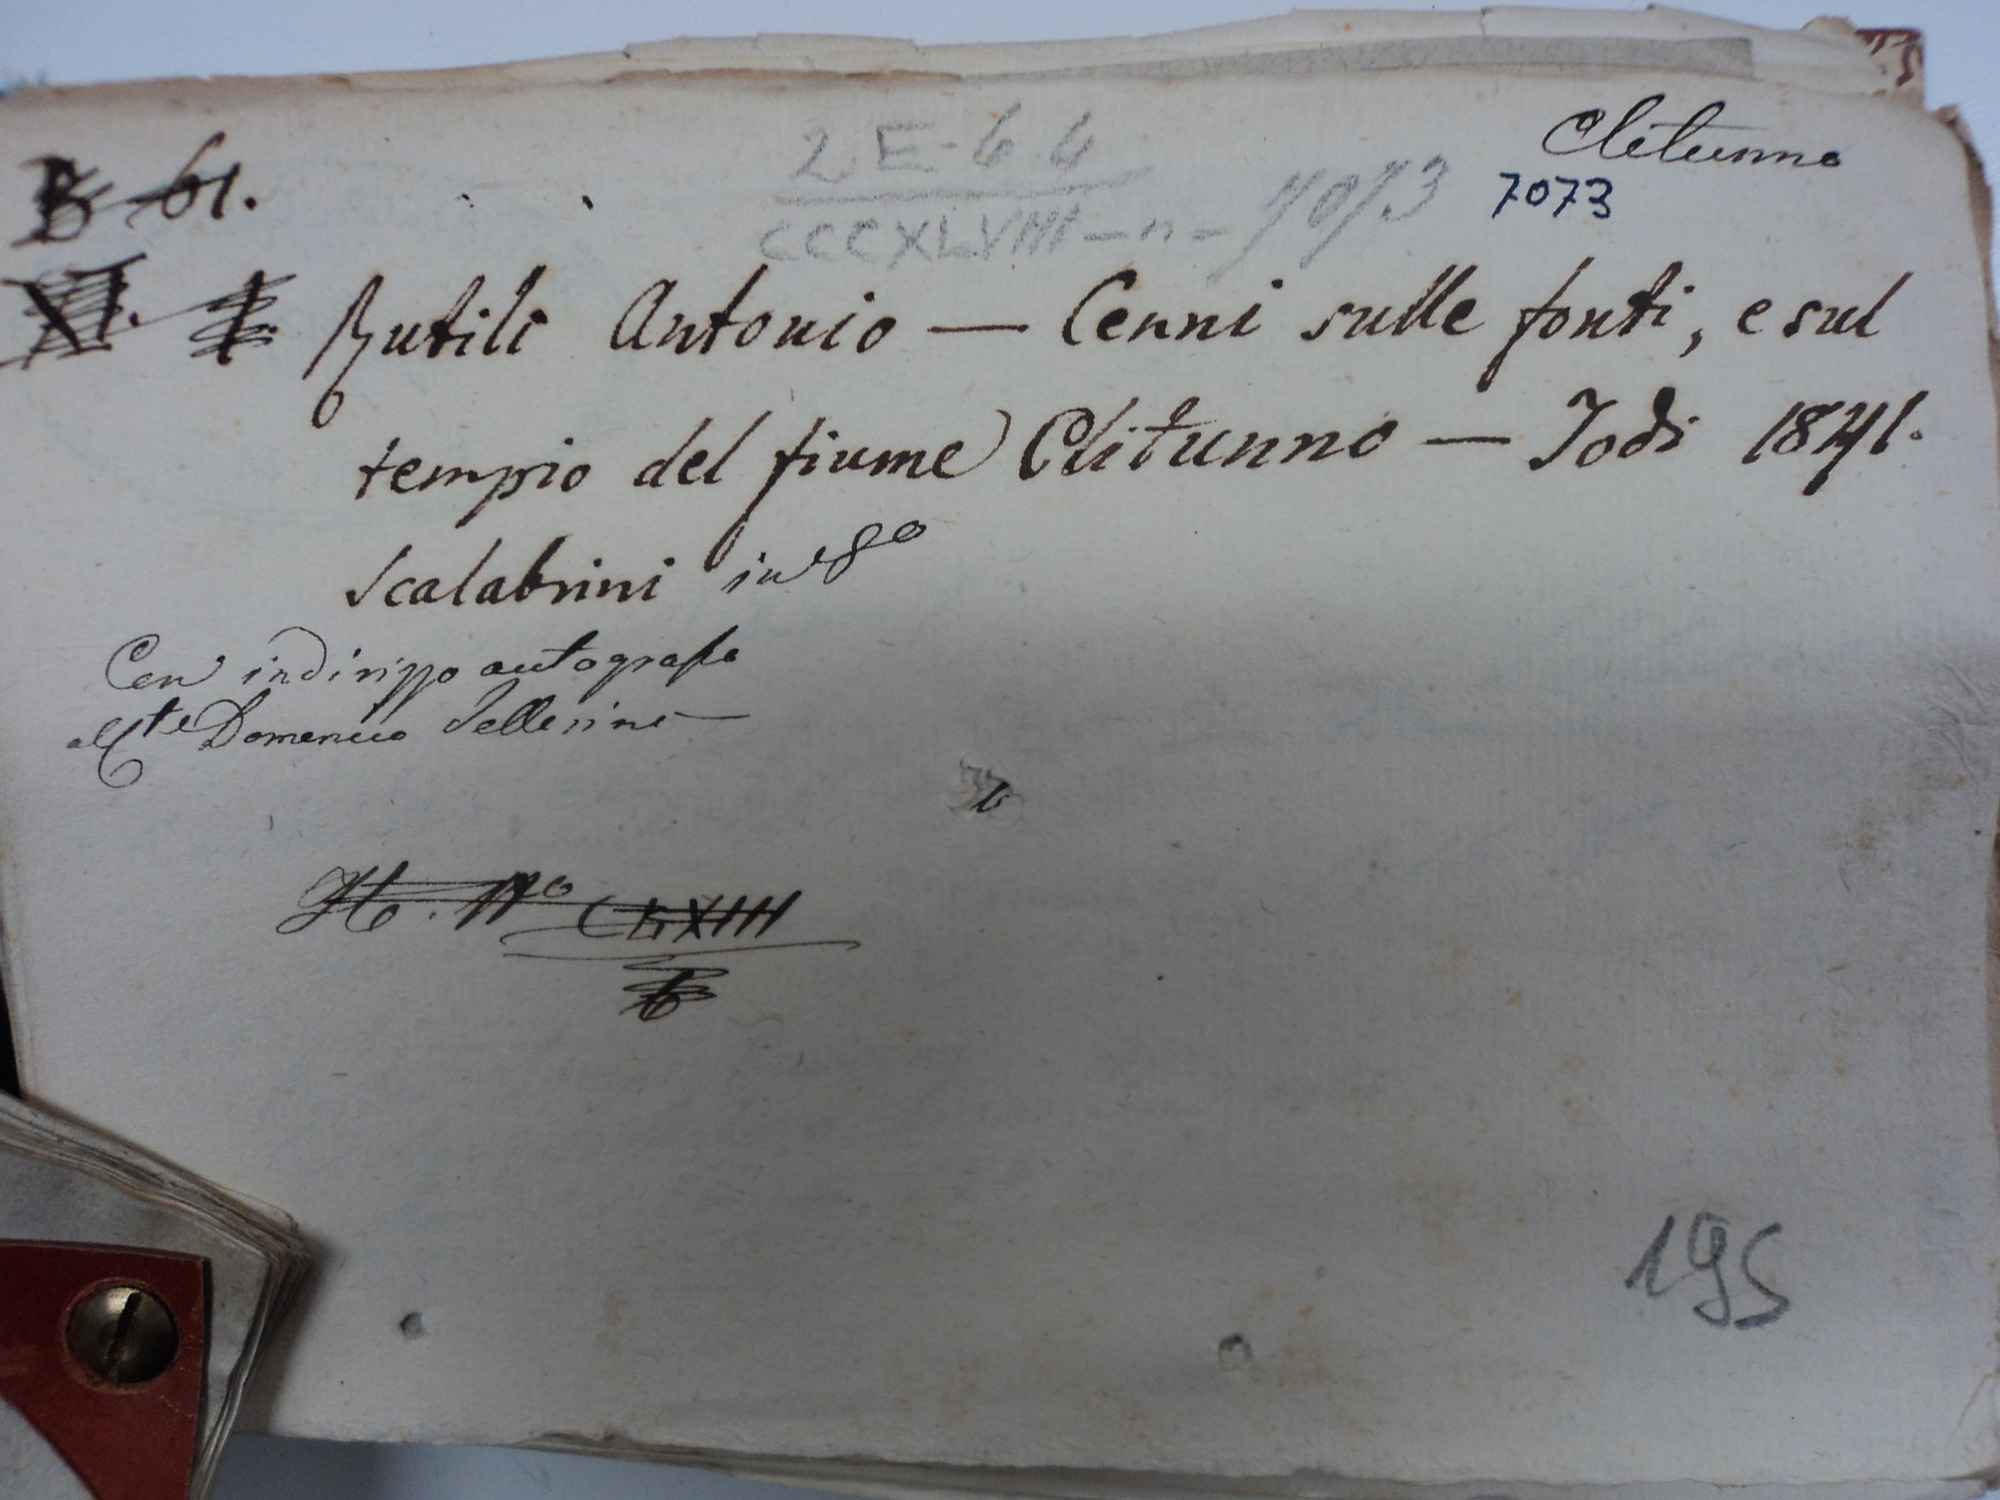 Clitunno
2E-64
B 61.
7073
CCCXLVIII - n - 7073
XI. 1. Rutili Antonio — Cenni sulle fonti, e sul
tempio del fiume Clitunno — Todi 1841.
Scalabrini in 8o
Con indirizzo autografo
al Cte Domenico
CLXIII
195